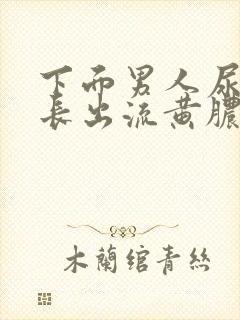 下面男人尿
表出流黄膿
木蘭绾青絲